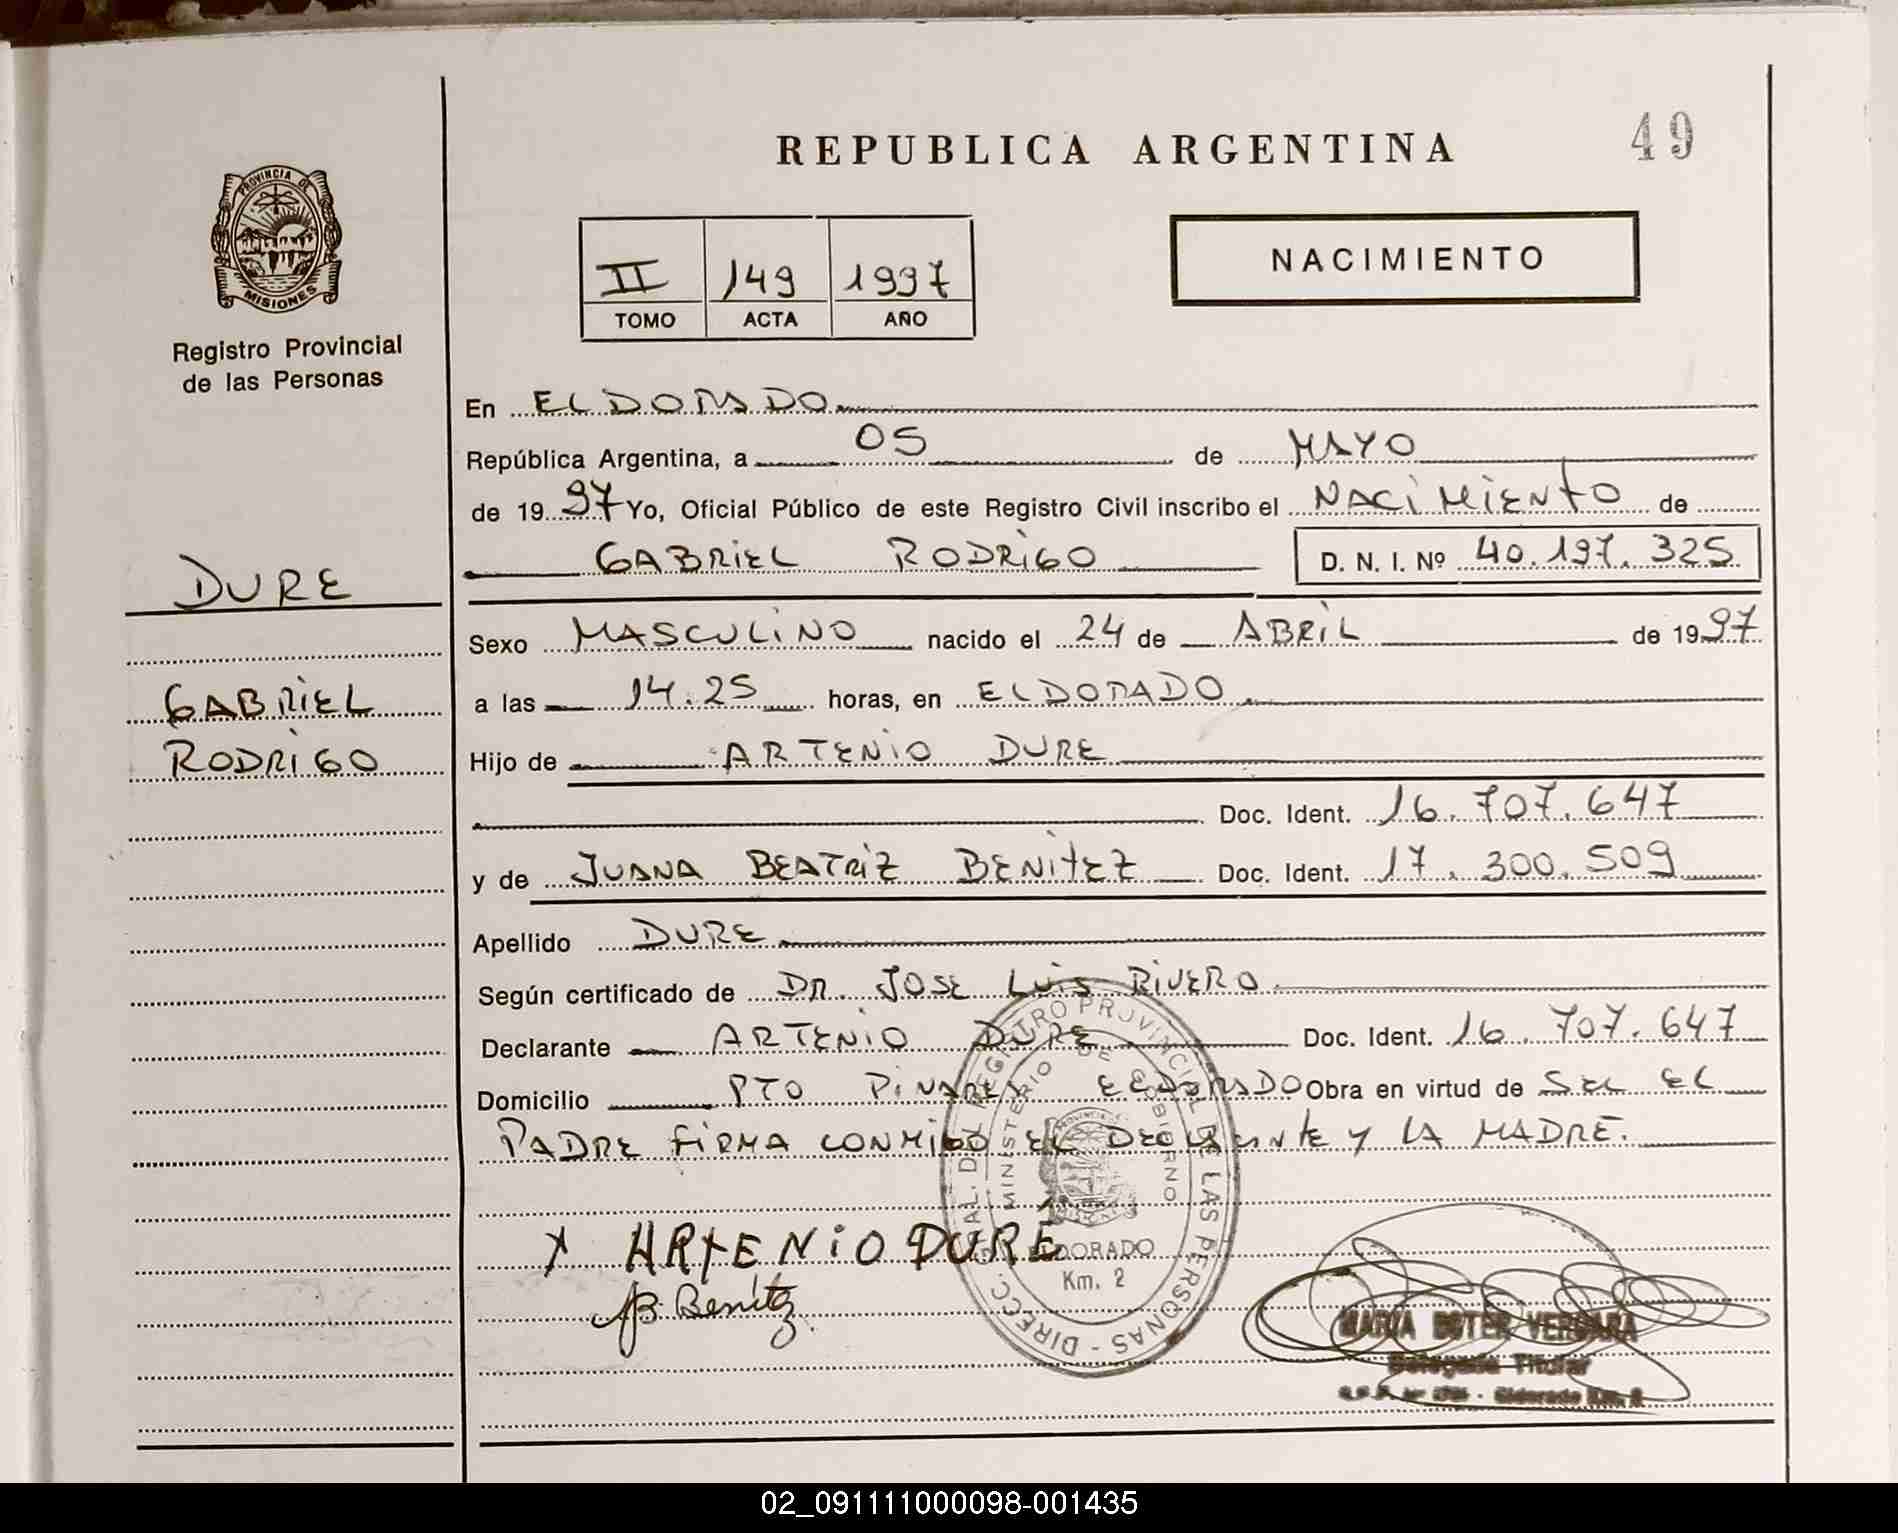 REPUBLICA ARGENTINA
49
PROVINCIA DE
MISIONES
Registro Provincial
de las Personas
II 149 1997
TOMO ACTA AÑO
NACIMIENTO
En ELDORADO
República Argentina, a 05 de MAYO
de 1997 Yo, Oficial Público de este Registro Civil inscribo el NACIMIENTO de
GABRIEL RODRIGO D. N. I. Nº 40.197.325
DURE
Sexo MASCULINO nacido el 24 de ABRIL de 1997
GABRIEL
a las 14.25 horas, en ELDORADO
RODRIGO
Hijo de ARTENIO DURE
Doc. Ident. 16.707.647
y de JUANA BEATRIZ BENITEZ Doc. Ident. 17.300.509
Apellido DURE
Según certificado de DR. JOSE LUIS RIVERO
Declarante ARTENIO DURE Doc. Ident. 16.707.647
Domicilio PTO PINARES ELDORADO Obra en virtud de SER EL
PADRE FIRMA CONMIGO EL DECLARANTE Y LA MADRE.
X ARTENIO DURÉ
JB Benítez
DIRECC. GRAL. DEL REGISTRO PROVINCIAL DE LAS PERSONAS -
MINISTERIO DE GOBIERNO
ELDORADO
Km. 2
MARIA ESTER VERGARA
Delegada Titular
Eldorado Km. 2
02_091111000098-001435